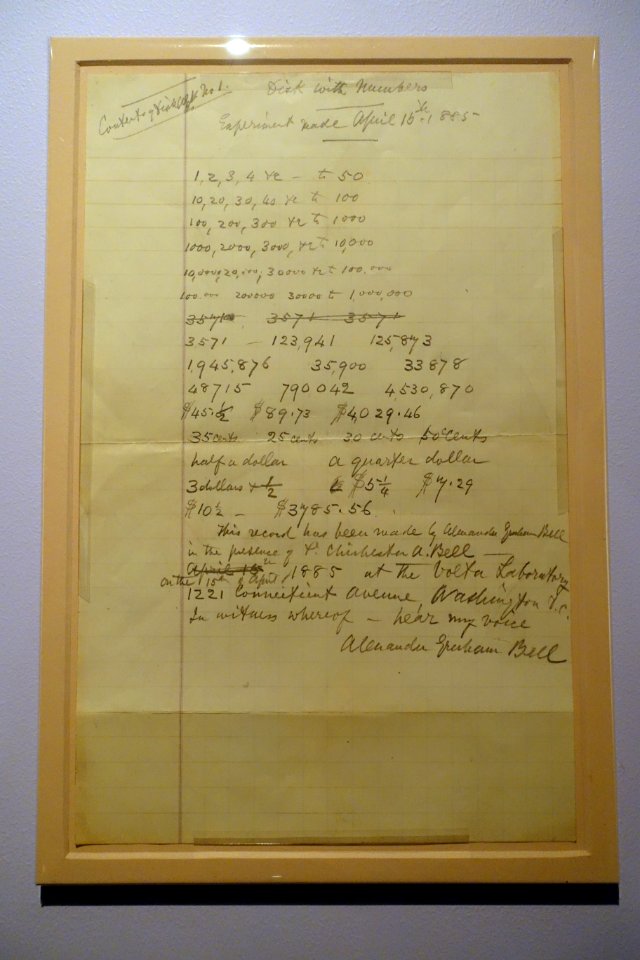 Contents of Disk No 1.
Disk with Numbers
Experiment made April 15th 1885
1, 2, 3, 4 &c — to 50
10, 20, 30, 40 &c to 100
100, 200, 300 &c to 1000
1000, 2000, 3000, &c to 10,000
10,000, 20,000, 30000 &c to 100.000
100.000 200000 30000 to 1,000,000
3571 3571 3571
3571 — 123,941 125,873
1,945,876 35,900 33878
48715 790042 4,530,870
$45.½ $89.73 $4,029.46
35 cents 25 cents 30 cents 50 cents
half a dollar a quarter dollar
3 dollars & ½ $5¼ $7.29
$10½ — $3785.56.
This record has been made by Alexander Graham Bell
in the presence of Dr. Chichester A. Bell —
April 15th
on the 15th of April, 1885 at the Volta Laboratory
1221 Connecticut Avenue, Washington D.C.
In witness whereof — hear my voice
Alexander Graham Bell